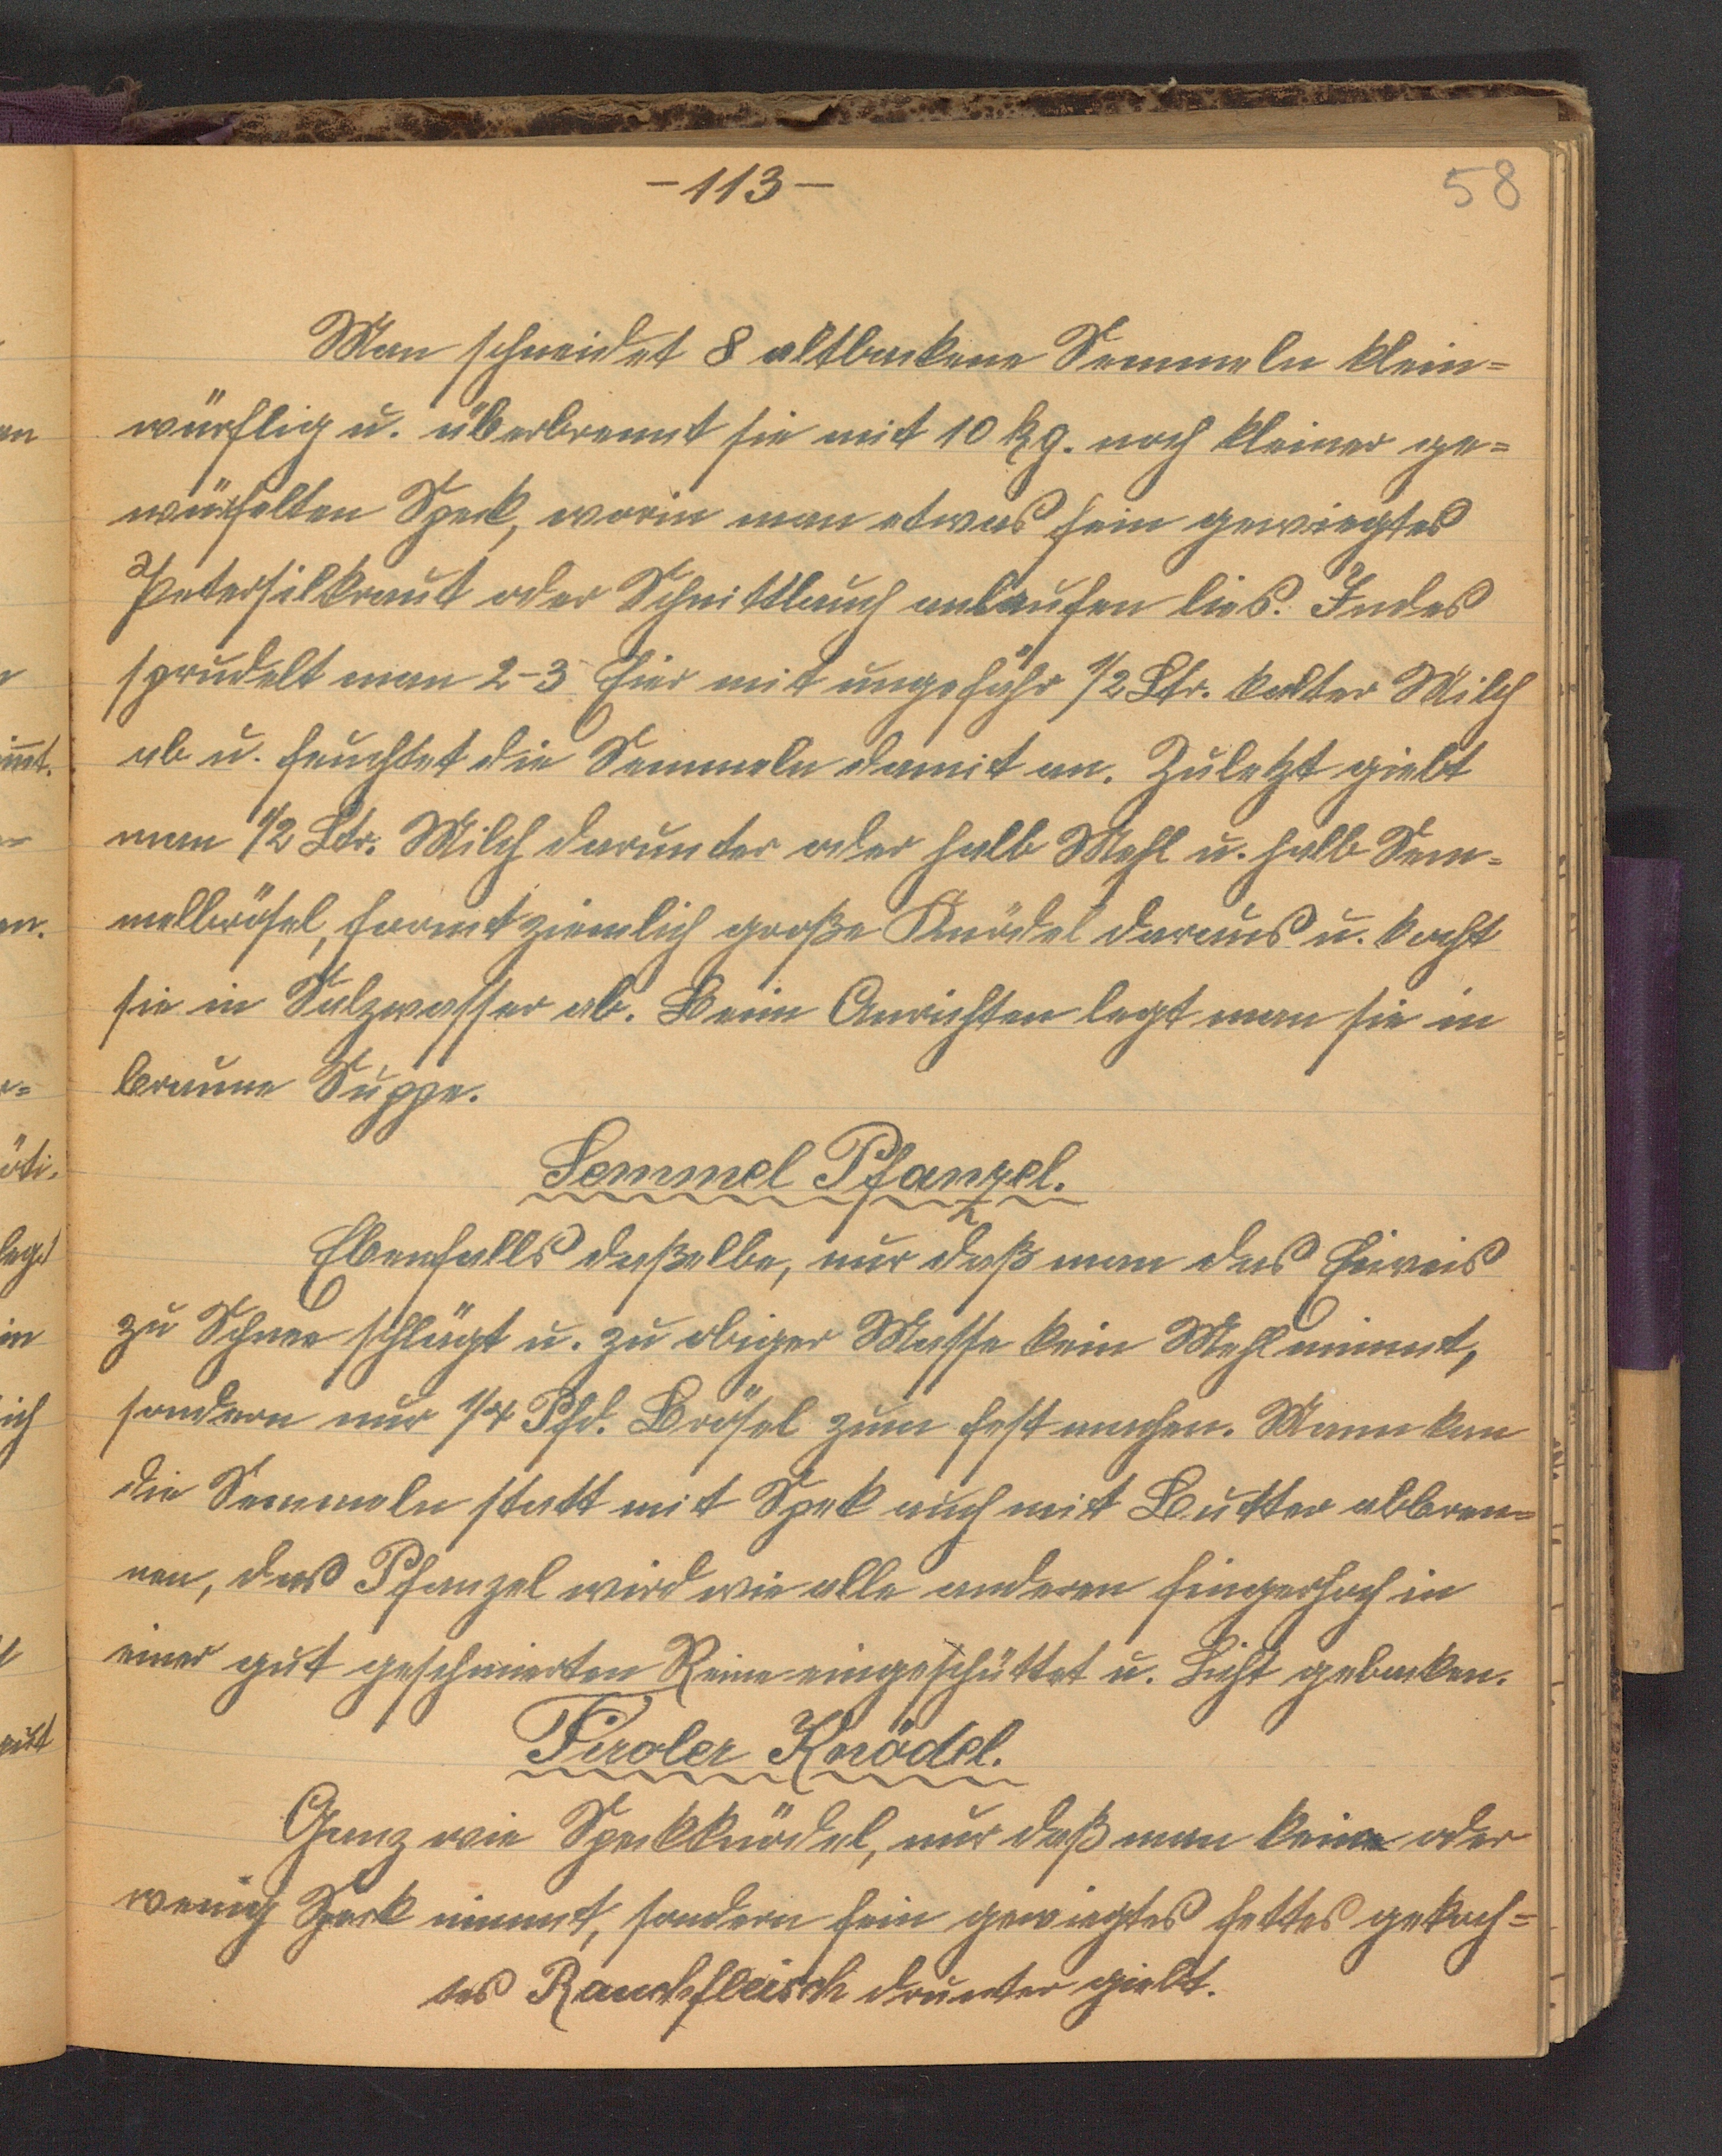 -113-
58
Man schneidet 8 altbackene Semmeln klein=
würflig u. überbrennt sie mit 10 kg. noch kleiner ge=
würfelten Speck, worin man etwas fein gewiegtes
Petersilkraut oder Schnittlauch anlaufen lies. Indes
sprudelt man 2-3 Eier mit ungefähr 1/2 Ltr. kalter Milch
ab u. feuchtet die Semmeln damit an. Zuletzt giebt
man 1/2 Ltr. Milch darunter oder halb Mehl u. halb Sem=
melbrösel, formt ziemlich große Knödel daraus u. kocht
sie in Salzwasser ab. Beim Anrichten legt man sie in
braune Suppe.
Semmel Pfanzel.
Ebenfalls daßelbe, nur daß man das Eiweis
zu Schnee schlägt u. zu obiger Masse kein Mehl nimmt,
sondern nur 1/4 Pfd. Brösel zum fest machen. Mann kan
die Semmeln statt mit Spek auch mit Butter abbren=
nen, das Pfanzel wird wie alle anderen fingerhoch in
einer gut geschmierten Reine eingeschüttet u. Licht gebacken.
Tiroler Knödel.
Ganz wie Speckknödel, nur daß man keine oder
wenig Speck nimmt, sondern fein gewiegtes fettes gekoch=
tes Rauchfleisch drunter giebt.